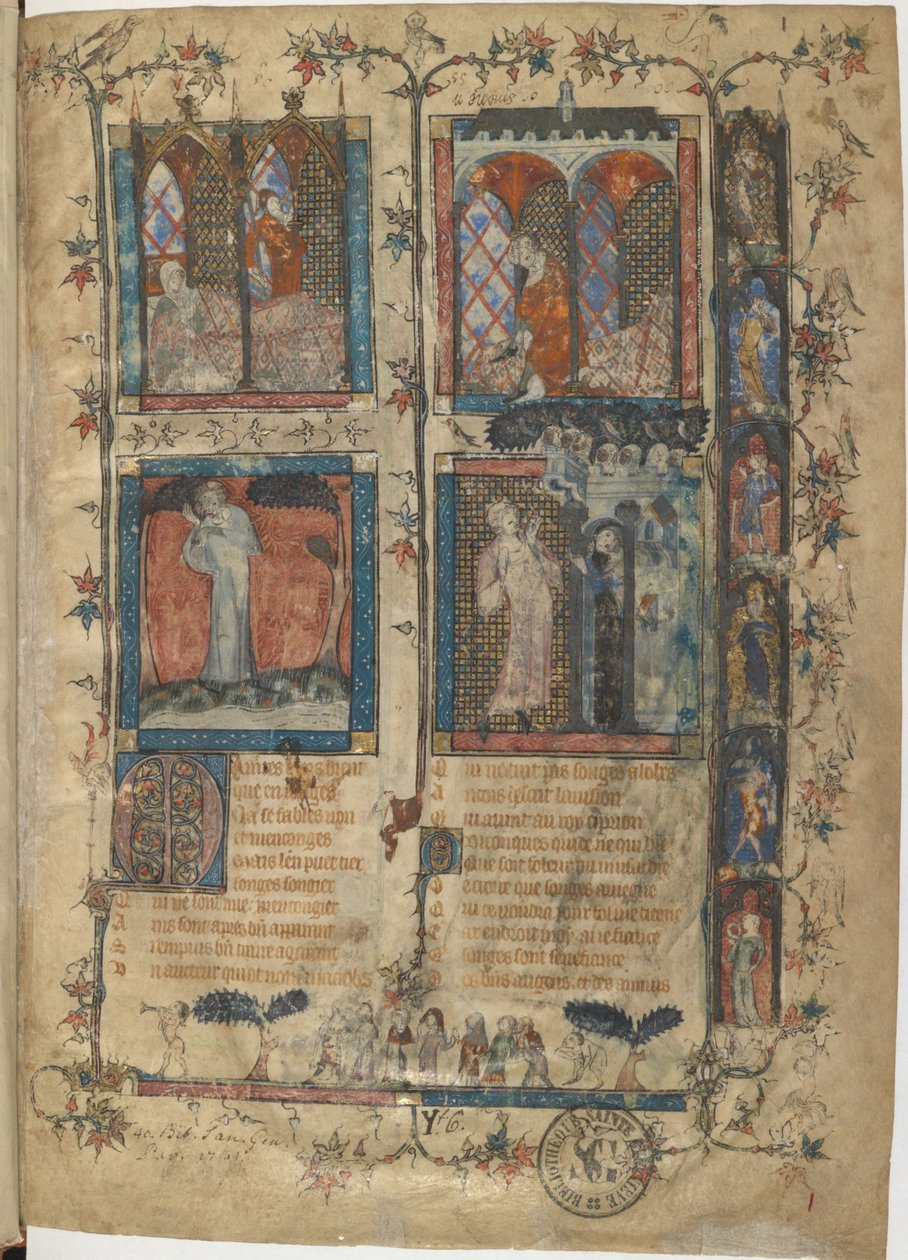 que en songes
Na se fables non
et menconges
Mais len puet tiex
songes songier
Qui ne sont mie mencongier
Ains sont apres bñ apparant
Si en puis bñ traire a garant
Un aucteur qui ot non macrobes
Qui ne tint pas songes a lobes
Ancois descrit la vision
Qui avint au roy ciprion
Quiconques quide ne qui die
Que soit folour ou musardie
De croire que songes aveigne
Qui ce voudra pour fol me tiegne
Car endroit moy ai ie fiance
Songes sont senefiance
Des bñs as gens et des anuis
Yf 6.
BIBLIOTHEQUE SAINTE GENEVIEVE
SG